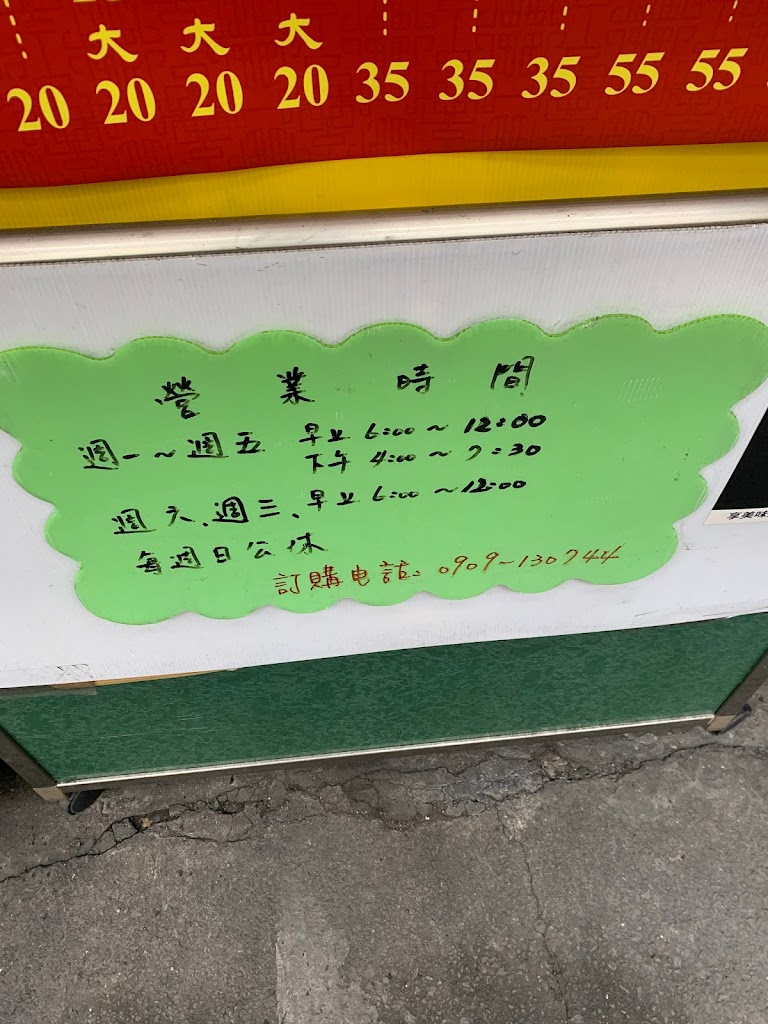 大 大 大
20 20 20 20 35 35 35 55 55
營業時間
週一~週五 早上 6:00~12:00
下午 4:00~7:30
週六、週三、早上 6:00~12:00
每週日公休
訂購电話: 0909-130744
享美味